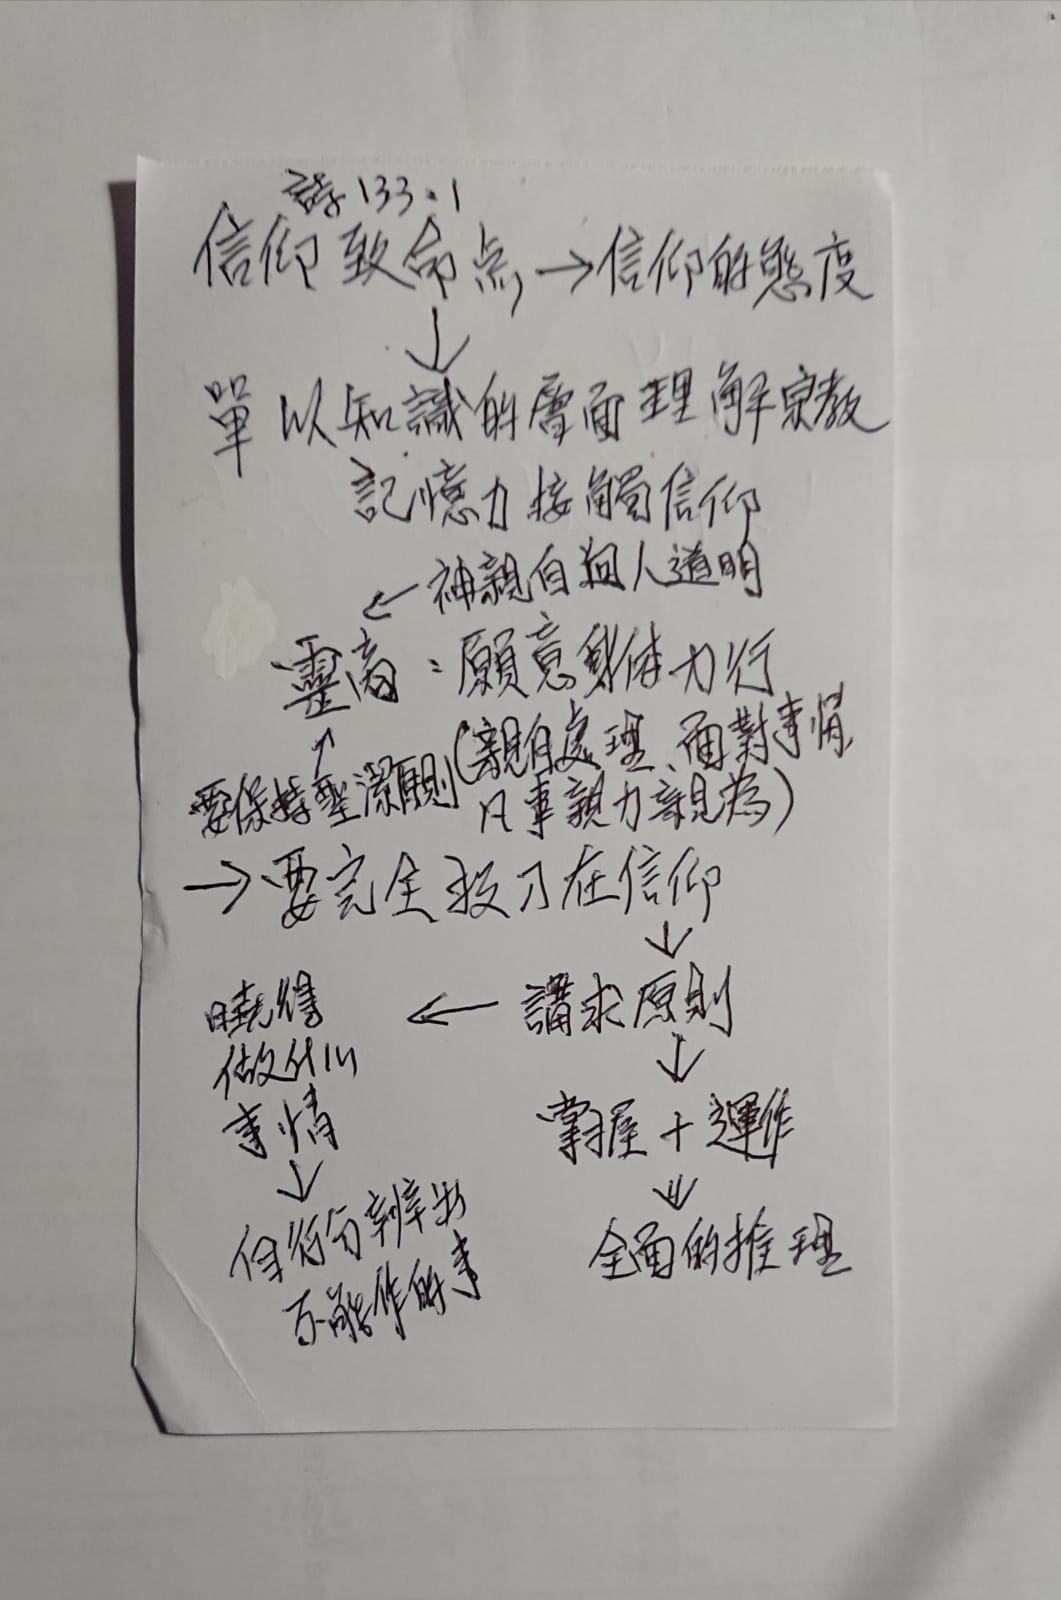 詩133:1
信仰致命点→信仰的態度
↓
單以知識的層面理解宗教
記憶力接觸信仰
←神親自向人道明
靈高:願意身体力行
↑
要保持聖潔原則(親自處理、面對事情,
凡事親力親為)
→要完全投刀在信仰
↓
曉得 ← 講求原則
做什么 ↓
事情 掌握+運作
↓ ↓
自行分辨出 全面的推理
不能作的事